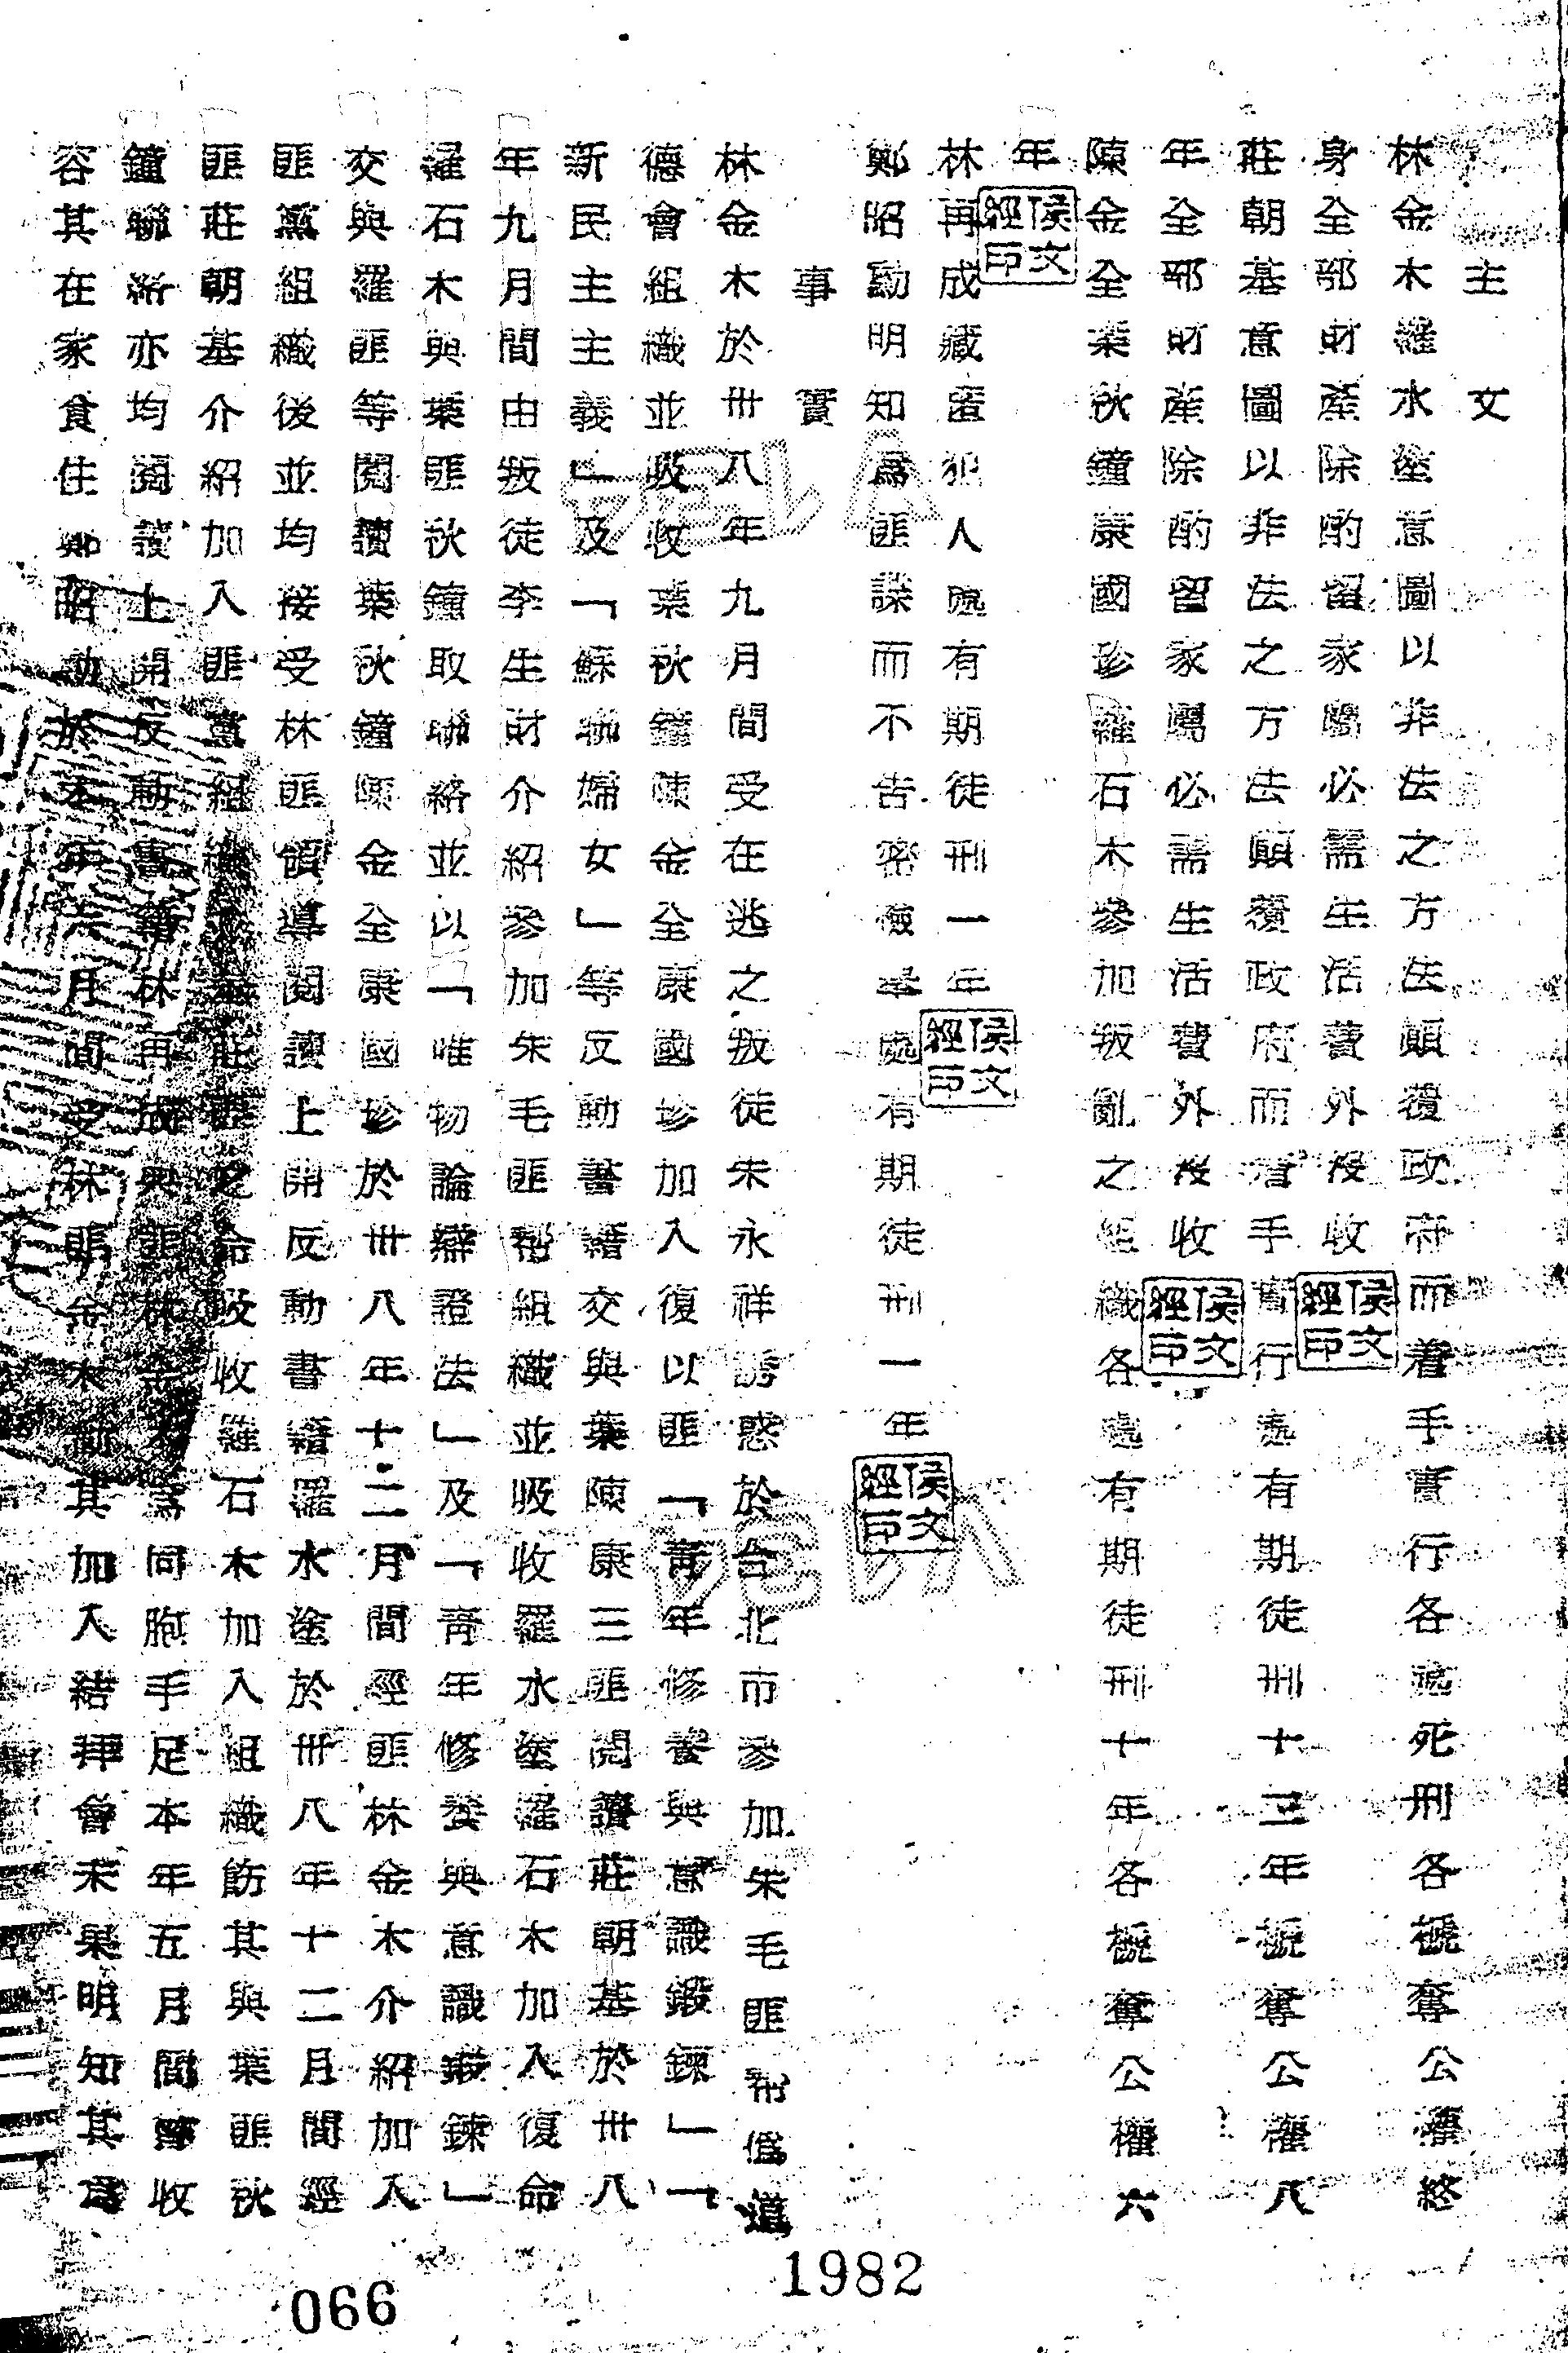 主文
林金木羅水塗意圖以非法之方法顛覆政府而着手實行各處死刑各褫奪公權終
身全部財產除酌留家屬必需生活費外沒收
侯文經印
莊朝基意圖以非法之方法顛覆政府而着手實行處有期徒刑十三年褫奪公權八
年全部財產除酌留家屬必需生活費外沒收
侯文經印
陳金全葉秋鐘康國珍羅石木參加叛亂之組織各處有期徒刑十年各褫奪公權六
年
侯文經印
林再成藏匿犯人處有期徒刑一年
侯文經印
鄭昭勳明知為匪諜而不告密檢舉處有期徒刑一年
侯文經印
事實
林金木於卅八年九月間受在逃之叛徒朱永祥誘惑於台北市參加朱毛匪幫偽道
德會組織並吸收葉秋鐘陳金全康國珍加入復以匪「青年修養與意識鍛鍊」「
新民主主義」及「蘇聯婦女」等反動書籍交與葉陳康三匪閱讀莊朝基於卅八
年九月間由叛徒李生財介紹參加朱毛匪幫組織並吸收羅水塗羅石木加入復命
羅石木與葉匪秋鐘取聯絡並以「唯物論辯證法」及「青年修養與意識鍛鍊」
交與羅匪等閱讀葉秋鐘陳金全康國珍於卅八年十二月間經匪林金木介紹加入
匪黨組織後並均接受林匪領導閱讀上開反動書籍羅水塗於卅八年十二月間經
匪莊朝基介紹加入匪黨組織莊匪之命吸收羅石木加入組織飭其與葉匪秋
鐘聯絡亦均閱讀上開反動書籍林再成與匪林金木為同胞手足本年五月間收
容其在家食住鄭昭勳於本年六月間受林匪金木邀其加入結拜會未果明知其為
1982
066